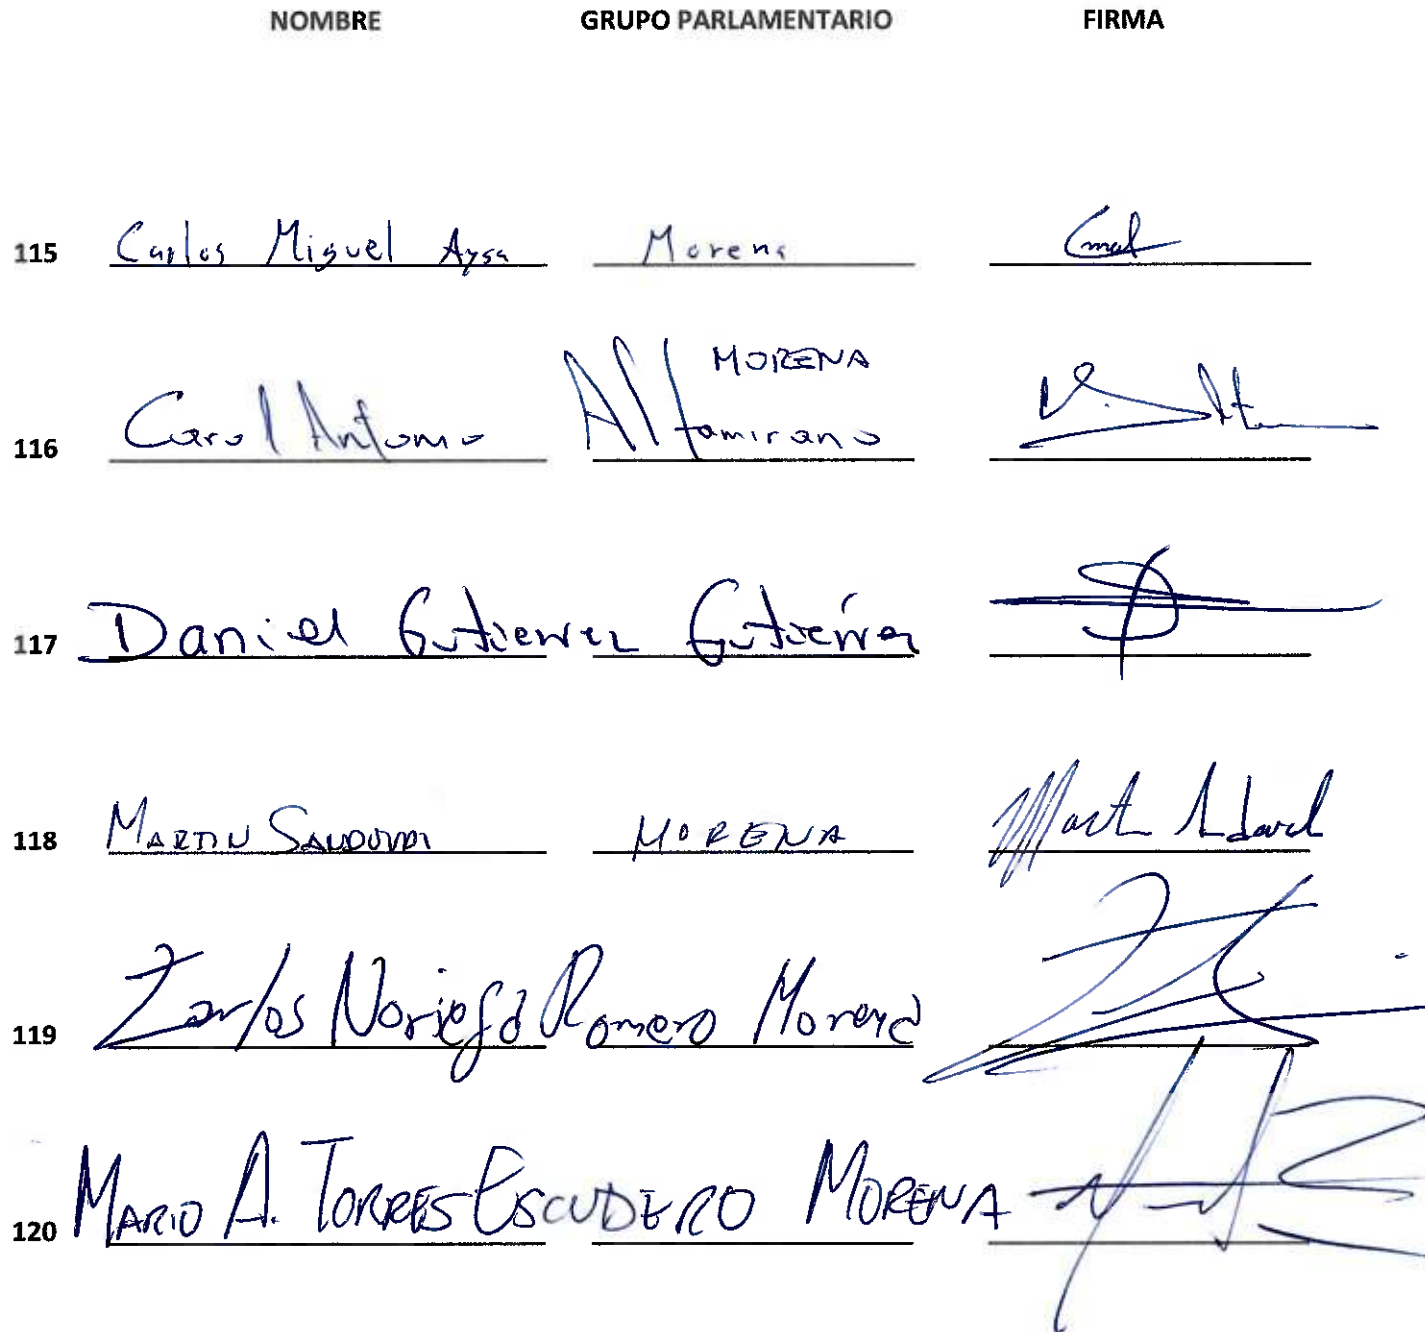 NOMBRE GRUPO PARLAMENTARIO FIRMA
115 Carlos Miguel Aysa Morena
116 Carol Antonio Altamirano MORENA
117 Daniel Gutierrez Gutiérrez
118 MARTIN SANDOVAL MORENA
119 Carlos Noriega Romero Morena
120 MARIO A. TORRES ESCUDERO MORENA